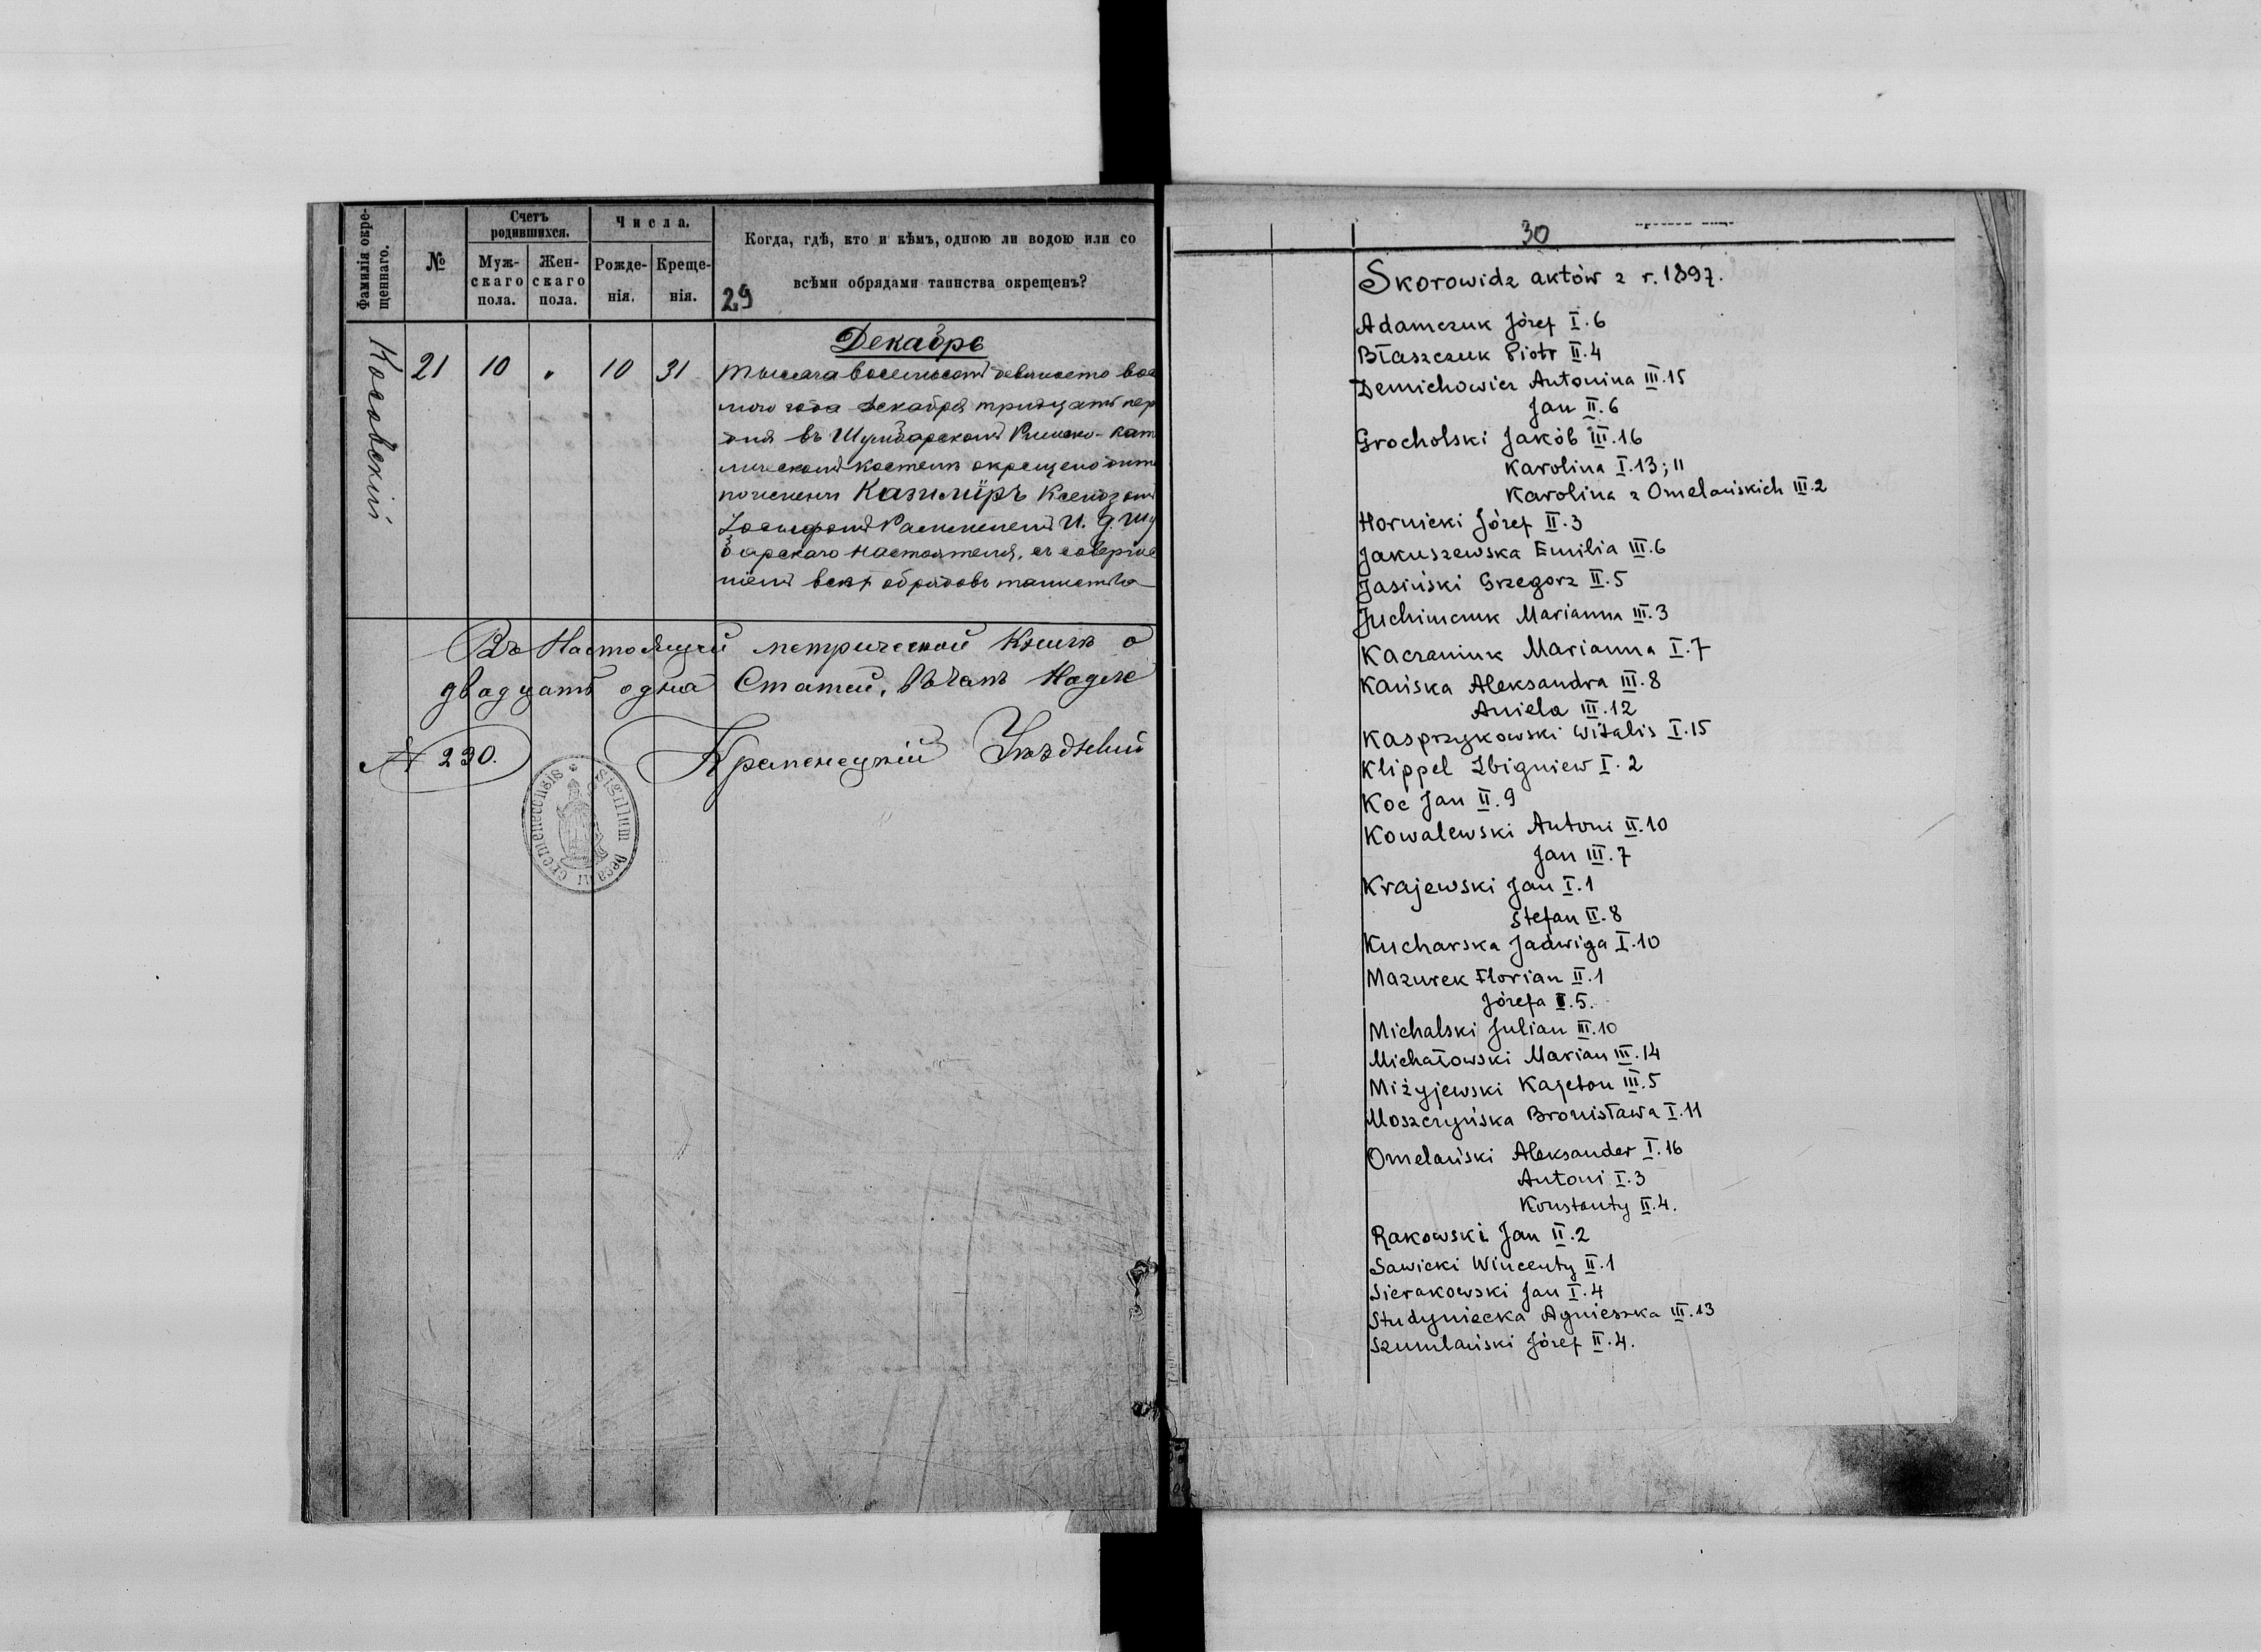 Фамилія окре-
щеннаго.
№
Счетъ
родившихся.
Муж-
скаго
пола.
Жен-
скаго
пола.
Числа.
Рожде-
нія.
Креще-
нія.
Когда, гдѣ, кто и кѣмъ, одною ли водою или со
всѣми обрядами таинства окрещенъ?
29
Декабрь
21 10 " 10 31
тысяча восемьсотъ девяносто вос
мого года Декабря тридцать пер
дня въ Шумбарскомъ Римско-Кат
лическомъ костелѣ окрещено дитя
по имени Казимiръ Ксендзомъ
И. д. Шу
барского Настоятеля, съ соверше
ніемъ всѣхъ обрядовъ таинства
Въ Настоящей метрической Книгѣ о
двадцать одна Статей, въ чемъ Надле
№ 230. Кременецкій
Sigillum Decani Cremenecensis
30
Skorowidz aktów z r. 1897.
Adamczuk Józef I.6
Błaszczuk Piotr II.4
Demichowicz Antonina III.15
Jan II.6
Grocholski Jakób III.16
Karolina I.13; 11
Karolina z Omelańskich III.2
Hornicki Józef II.3
Jakuszewska Emilia III.6
Jasiński Grzegorz II.5
Juchimczuk Marianna III.3
Kaczaniuk Marianna I.7
Kańska Aleksandra III.8
Aniela III.12
Kasprzykowski Witalis I.15
Klippel Zbigniew I.2
Koc Jan II.9
Kowalewski Antoni II.10
Jan III.7
Krajewski Jan I.1
Stefan II.8
Kucharska Jadwiga I.10
Mazurek Florian II.1
Józefa I.5.
Michalski Julian III.10
Michałowski Marian III.14
Miżyjewski Kajetan III.5
Moszczyńska Bronisława I.11
Omelański Aleksander I.16
Antoni I.3
Konstanty II.4.
Rakowski Jan II.2
Sawicki Wincenty II.1
Sierakowski Jan I.4
Studyniecka Agnieszka III.13
Szumlański Józef II.4.